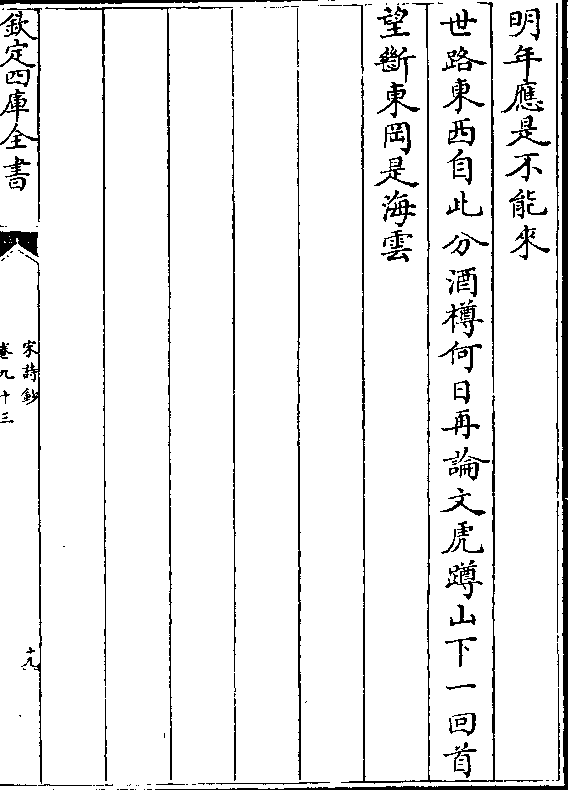 明年應是不能來
世路東西自此分酒樽何日再論文虎蹲山下一回首
望斷東岡是海雲
欽定四庫全書
宋詩鈔
卷九十三
十九